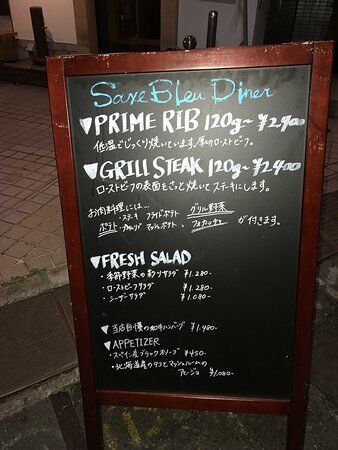 Saxe Bleu Diner
▼PRIME RIB 120g~¥2,400
低温でじっくり焼いています。厚切りローストビーフ。
▼GRILL STEAK 120g~¥2,400
ローストビーフの表面をさっと焼いてステーキにします。
お肉料理には…
・ステーキ フライドポテト グリル野菜
ポテト マッシュポテト フォカッチャ が付きます。
▼FRESH SALAD
・季節野菜の彩りサラダ ¥1,280
・ローストビーフサラダ ¥1,280
・シーザーサラダ ¥1,080
▼当店自慢の和牛ハンバーグ ¥1,480
▼APPETIZER
・スペイン産ブラックオリーブ ¥450
・北海道産のタコとマッシュルームの
アヒージョ ¥1,080